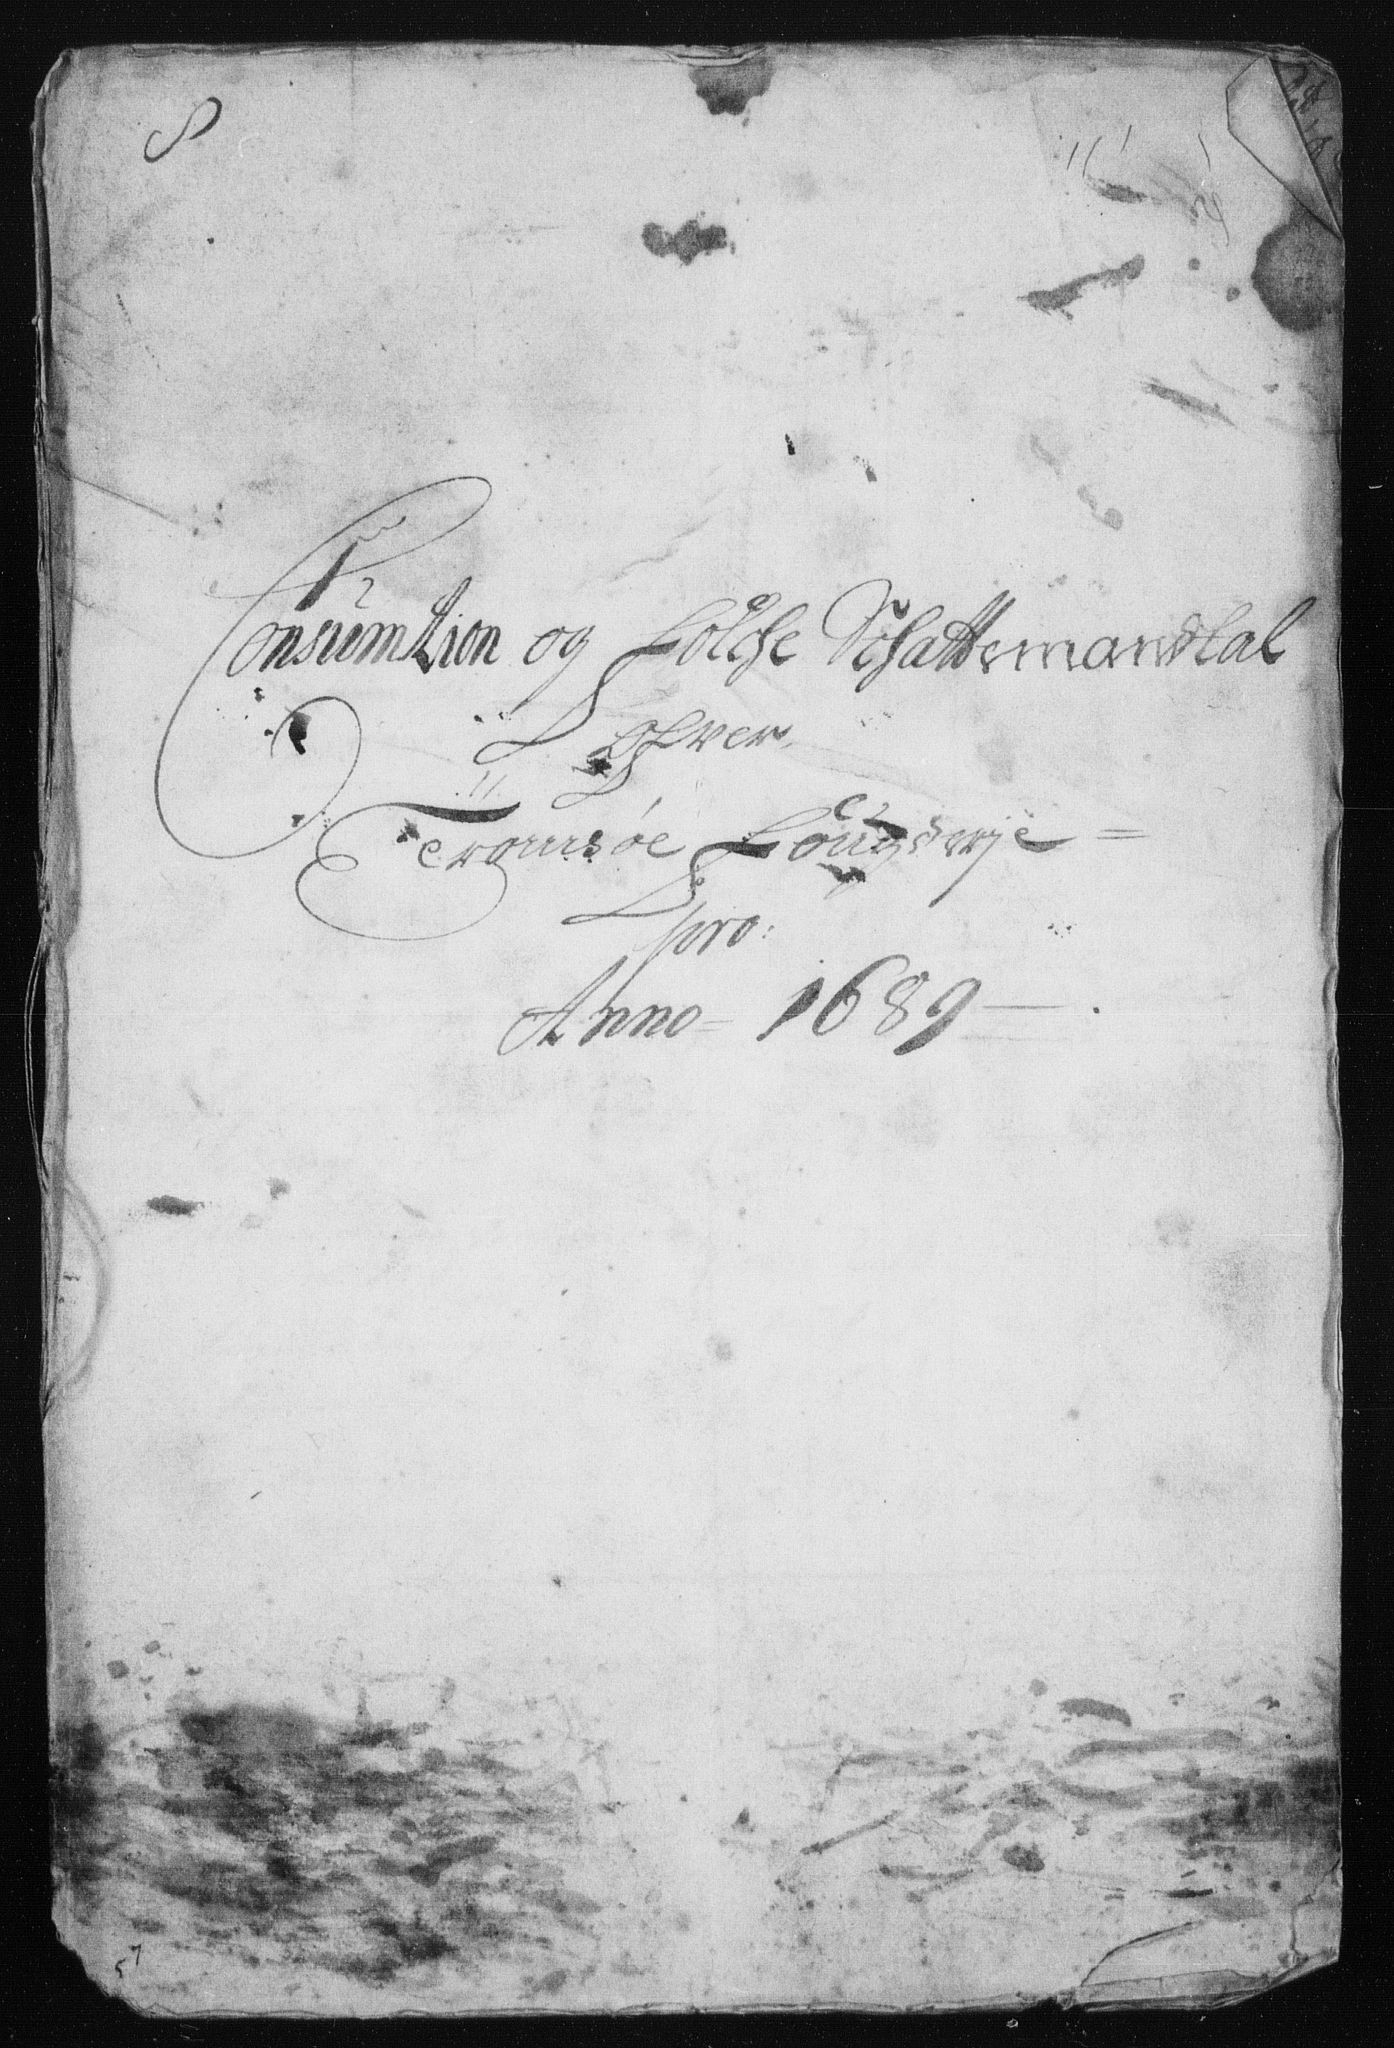 8
Consumtion og Folche Schattemandtal
Ofver
Tromsøe Fougderje =
pro:
Anno = 1689